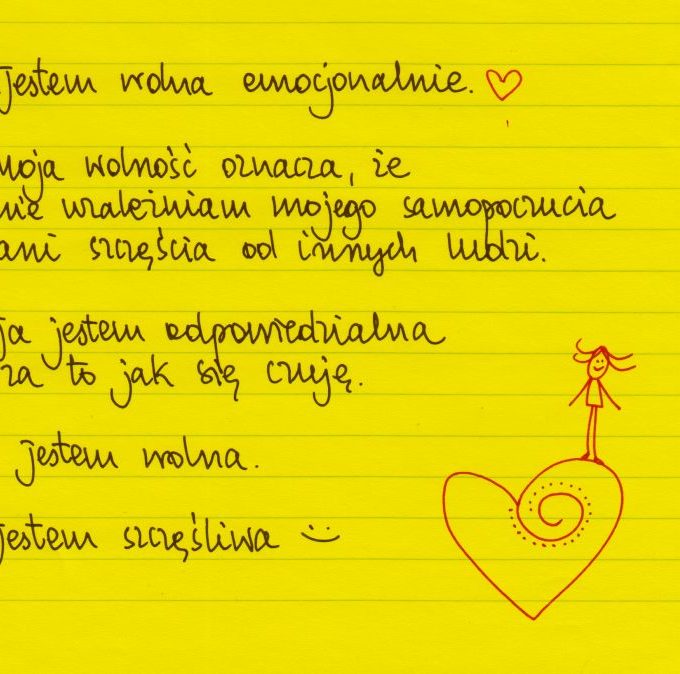 Jestem wolna emocjonalnie.
Moja wolność oznacza, że
nie uzależniam mojego samopoczucia
ani szczęścia od innych ludzi.
ja jestem odpowiedzialna
za to jak się czuję.
jestem wolna.
jestem szczęśliwa :)